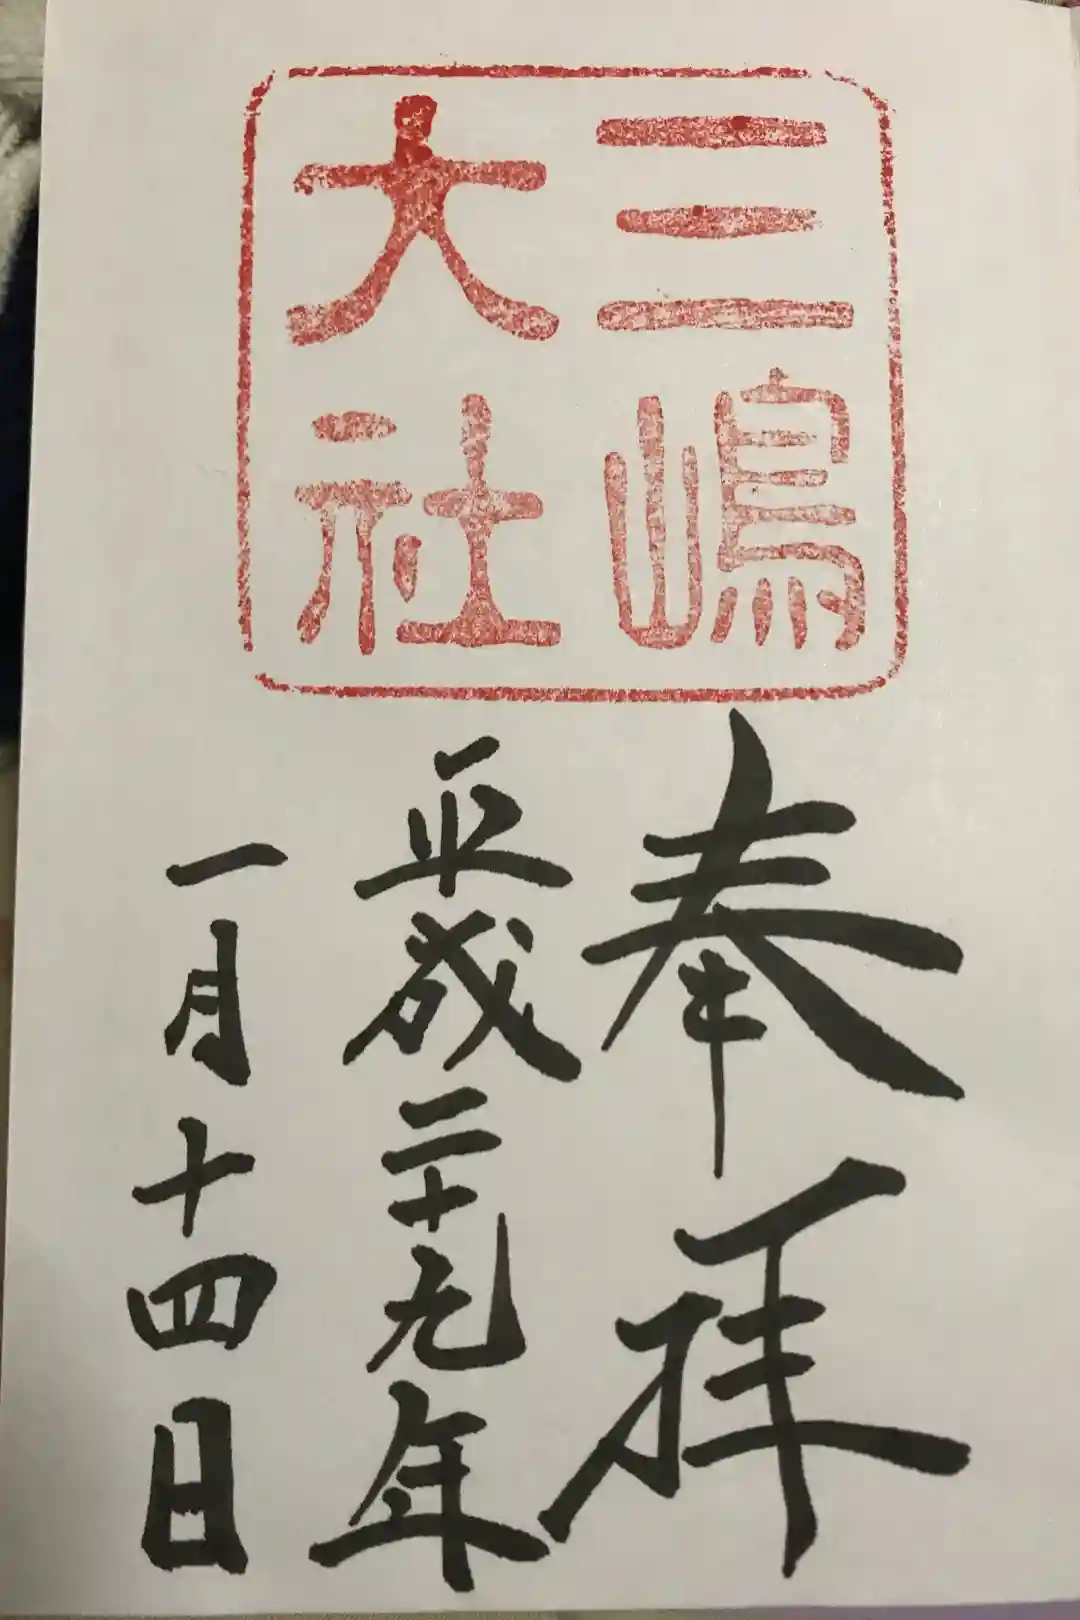 三嶋
大社
奉拝
平成二十九年
一月十四日